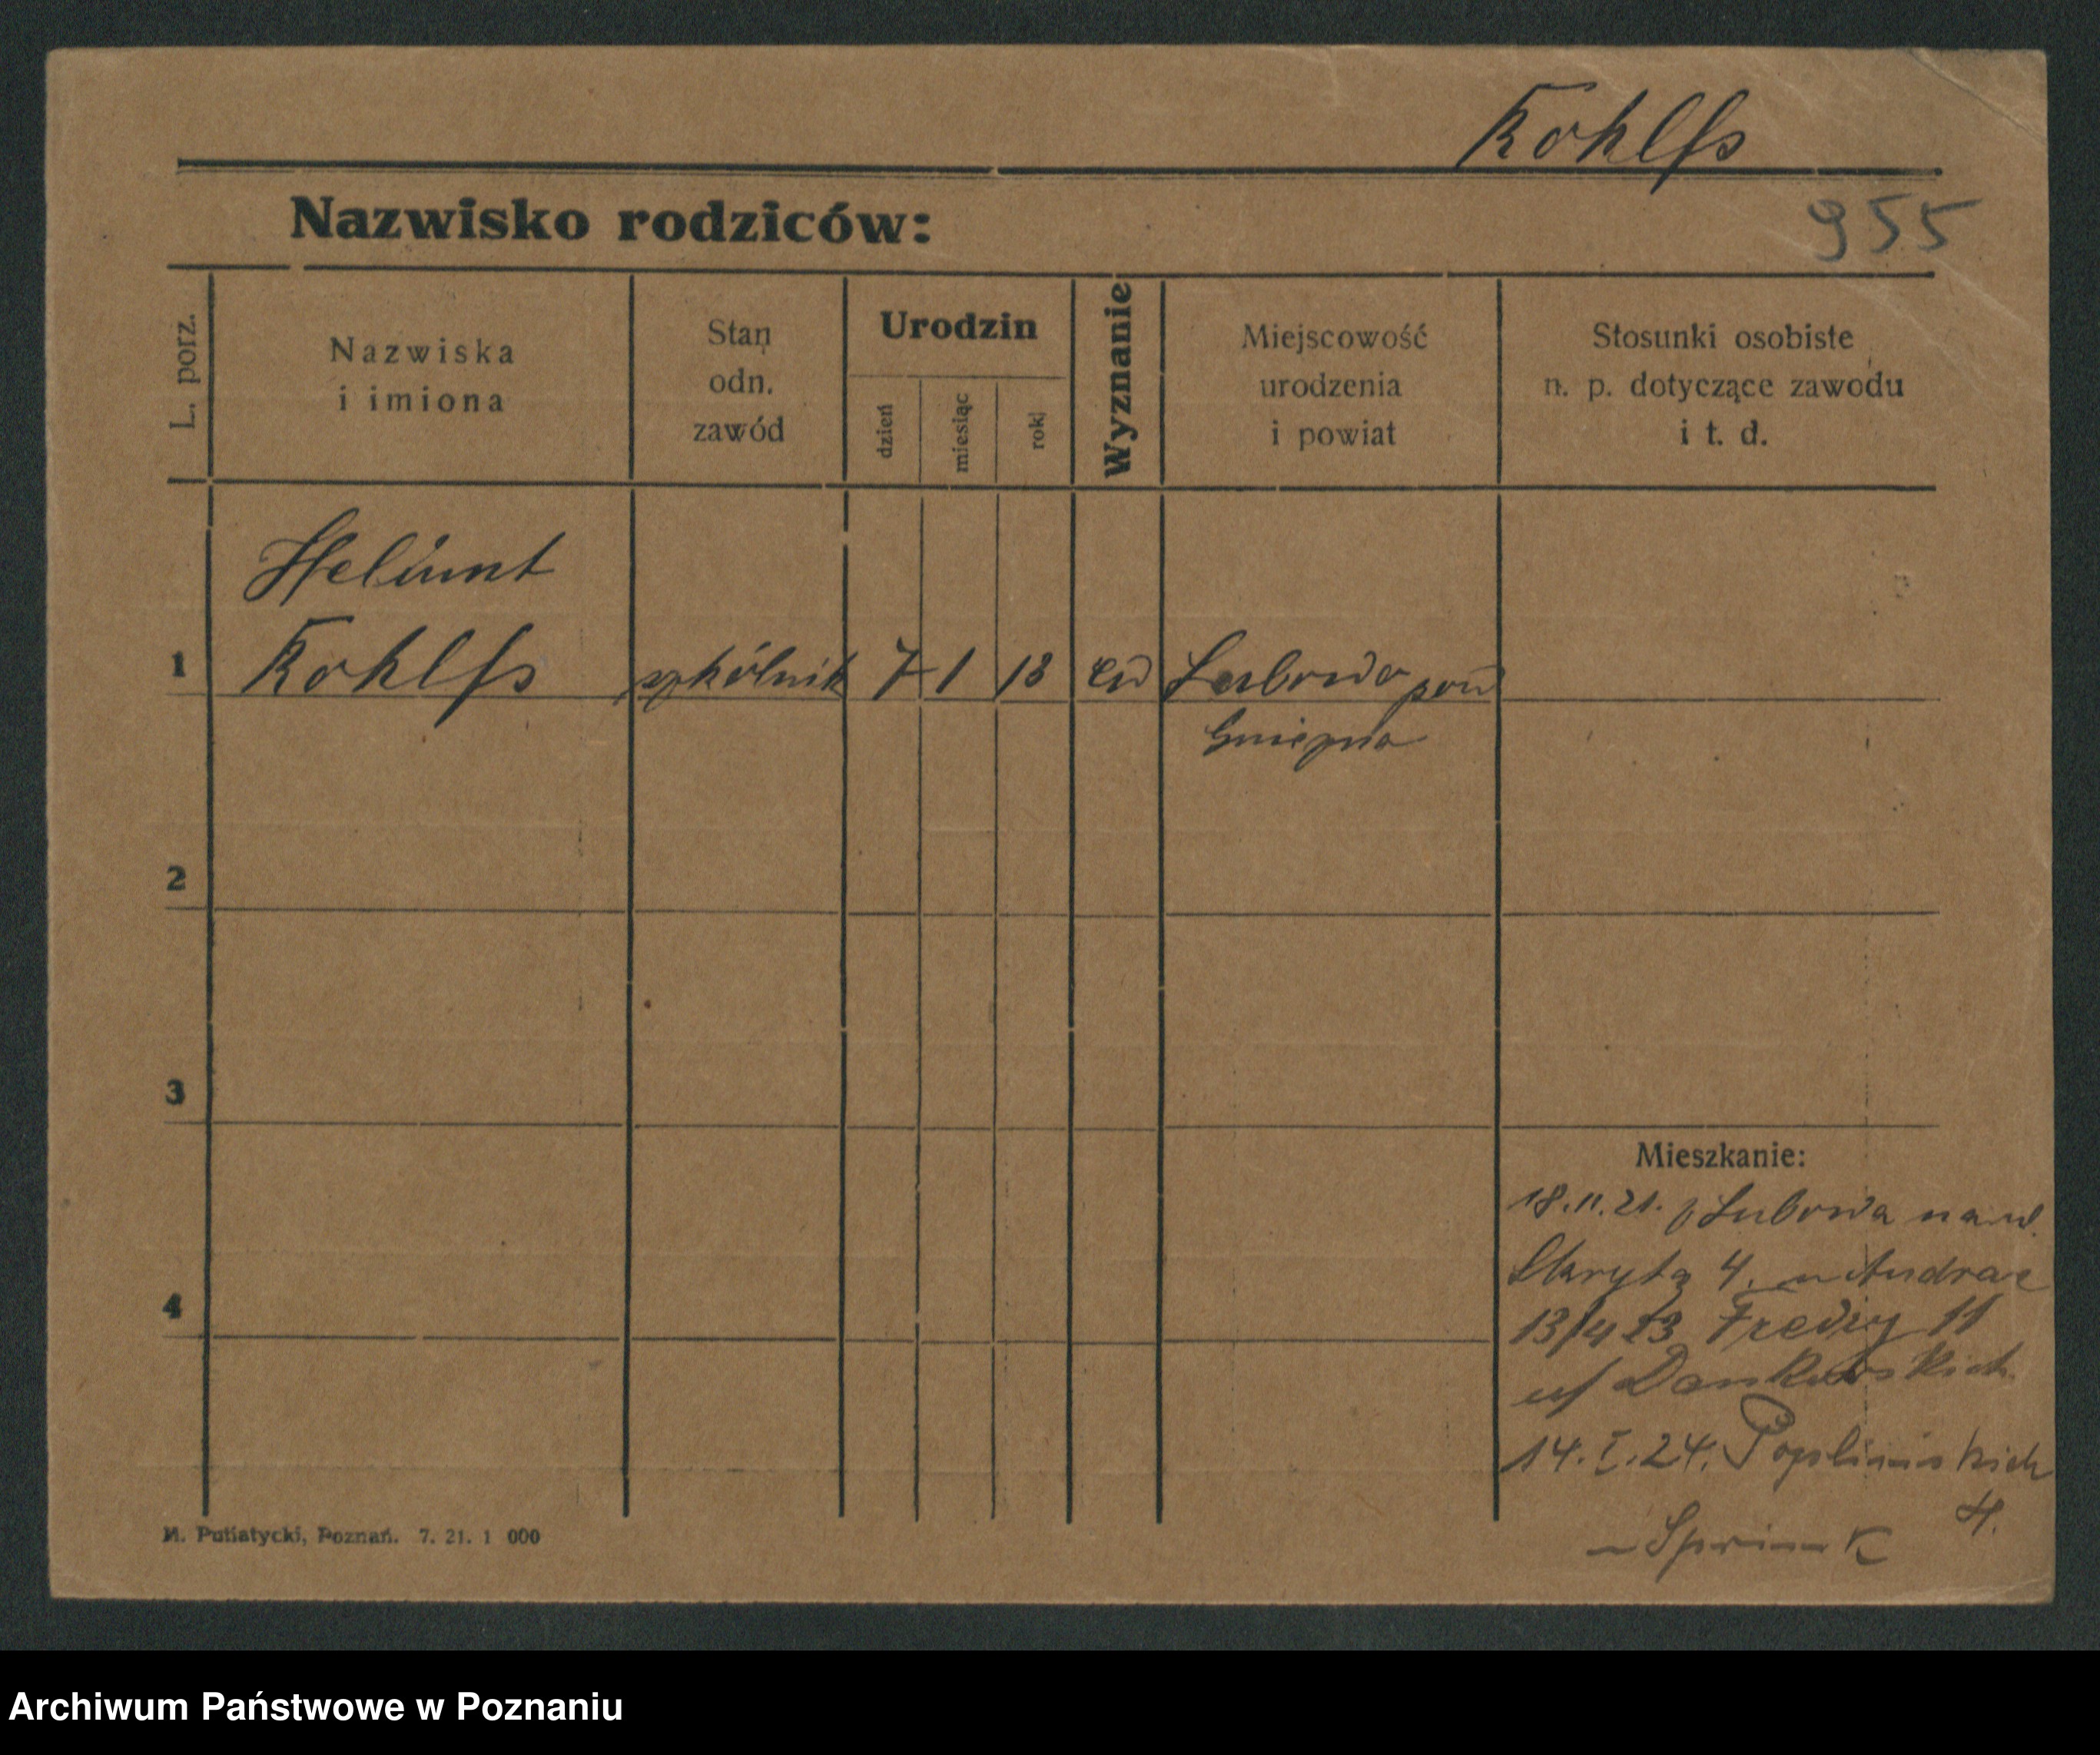 Kohlfs
955
Nazwisko rodziców:
L. porz.
Nazwiska
i imiona
Stan
odn.
zawód
Urodzin
dzień
miesiąc
rok
Wyznanie
Miejscowość
urodzenia
i powiat
Stosunki osobiste
n. p. dotyczące zawodu
i t. d.
Helmut
1 Kohlfs szkólnik 7 1 13 ew Lubowo pow
Gniezno
2
3
4
Mieszkanie:
18.11.21. z Lubowa na ul.
Skryta 4. u Andrae
13/4 23 Fredry 11
u/ Dankowskich
14.I.24. Poplińskich
4.
M. Putiatycki, Poznań. 7. 21. 1 000
Archiwum Państwowe w Poznaniu